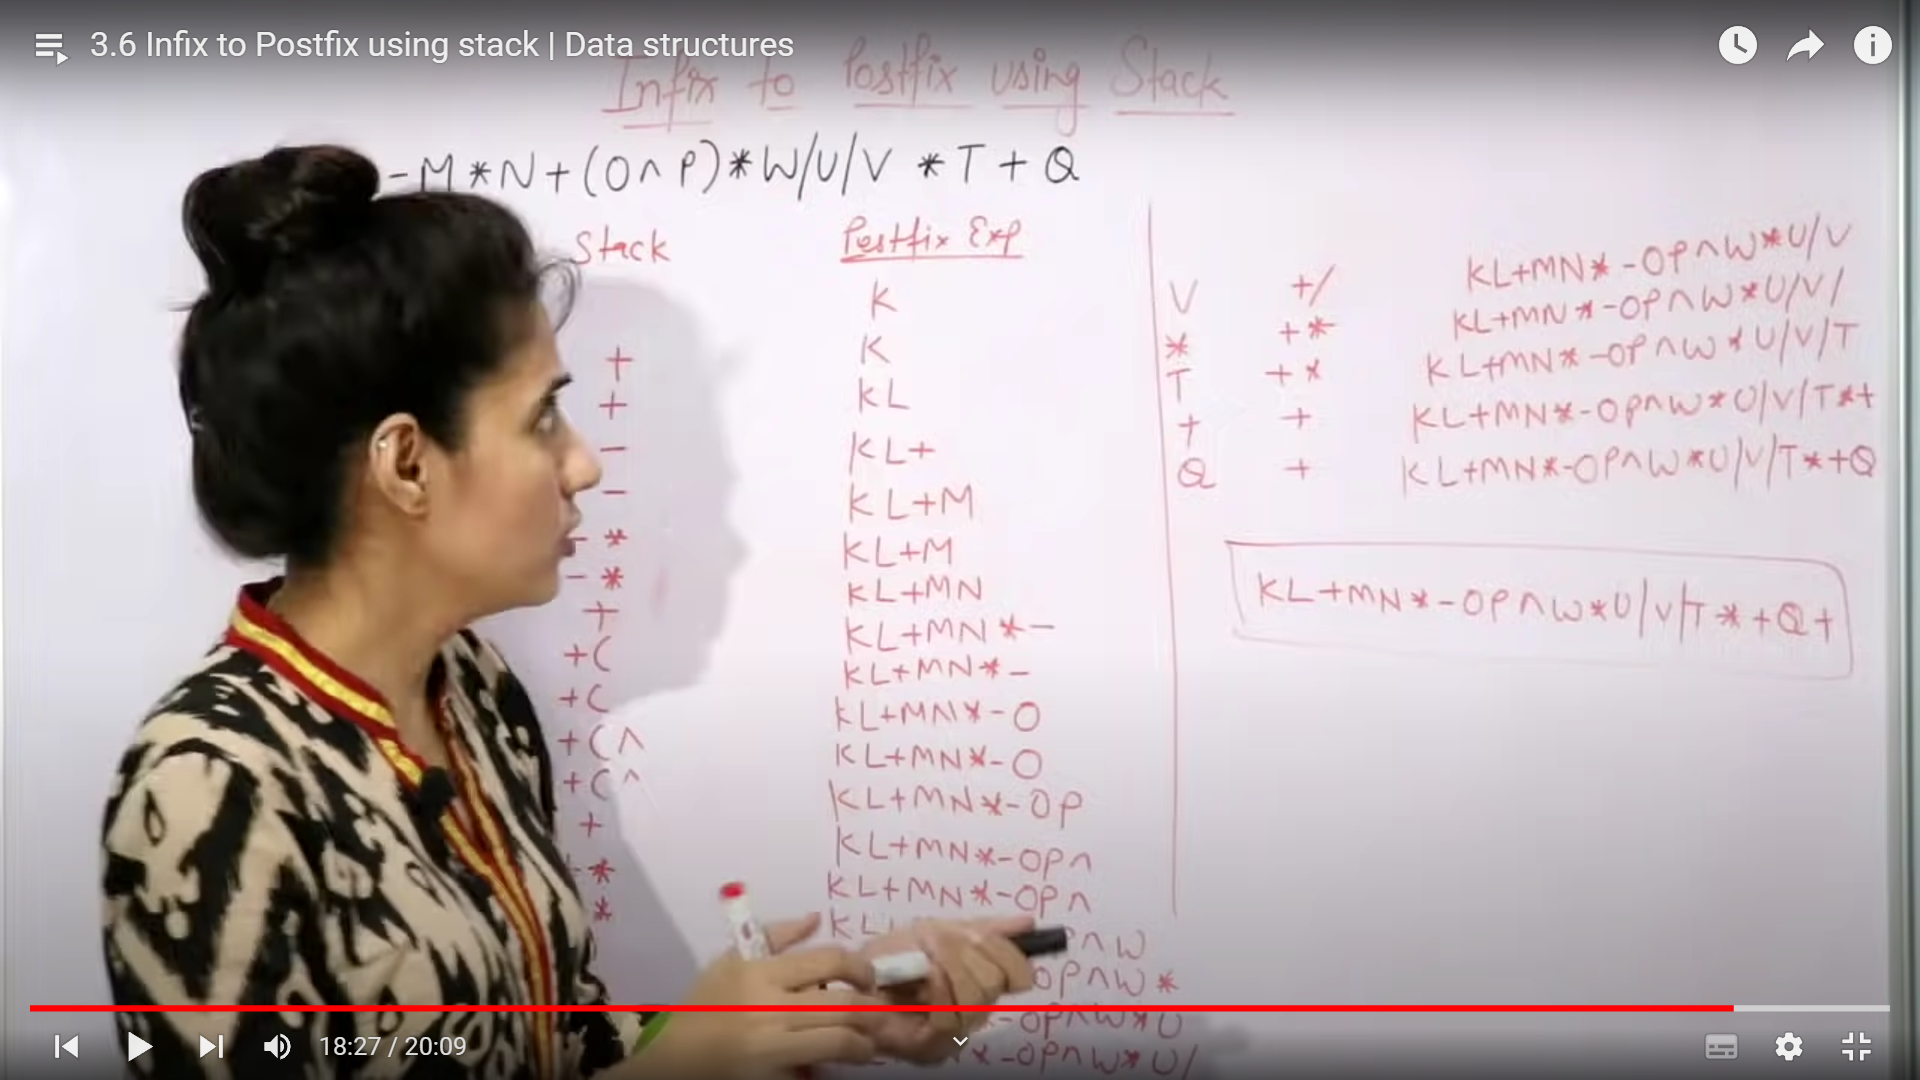 3.6 Infix to Postfix using stack | Data structures
Infix to Postfix using Stack
-M*N+(O^P)*W/U/V *T+Q
Stack
Postfix Exp
K
+ K
+ KL
- KL+
- KL+M
- * KL+M
- * KL+MN
+ KL+MN*-
+( KL+MN*-
+( KL+MN*-O
+(^ KL+MN*-O
+(^ KL+MN*-OP
+ KL+MN*-OP^
+* KL+MN*-OP^
* KL P^W
OP^W*
*-OP^W*U
*-OP^W*U/
V +/ KL+MN*-OP^W*U/V
* +* KL+MN*-OP^W*U/V/
T +* KL+MN*-OP^W*U/V/T
+ + KL+MN*-OP^W*U/V/T*+
Q + KL+MN*-OP^W*U/V/T*+Q
KL+MN*-OP^W*U/V/T*+Q+
18:27 / 20:09